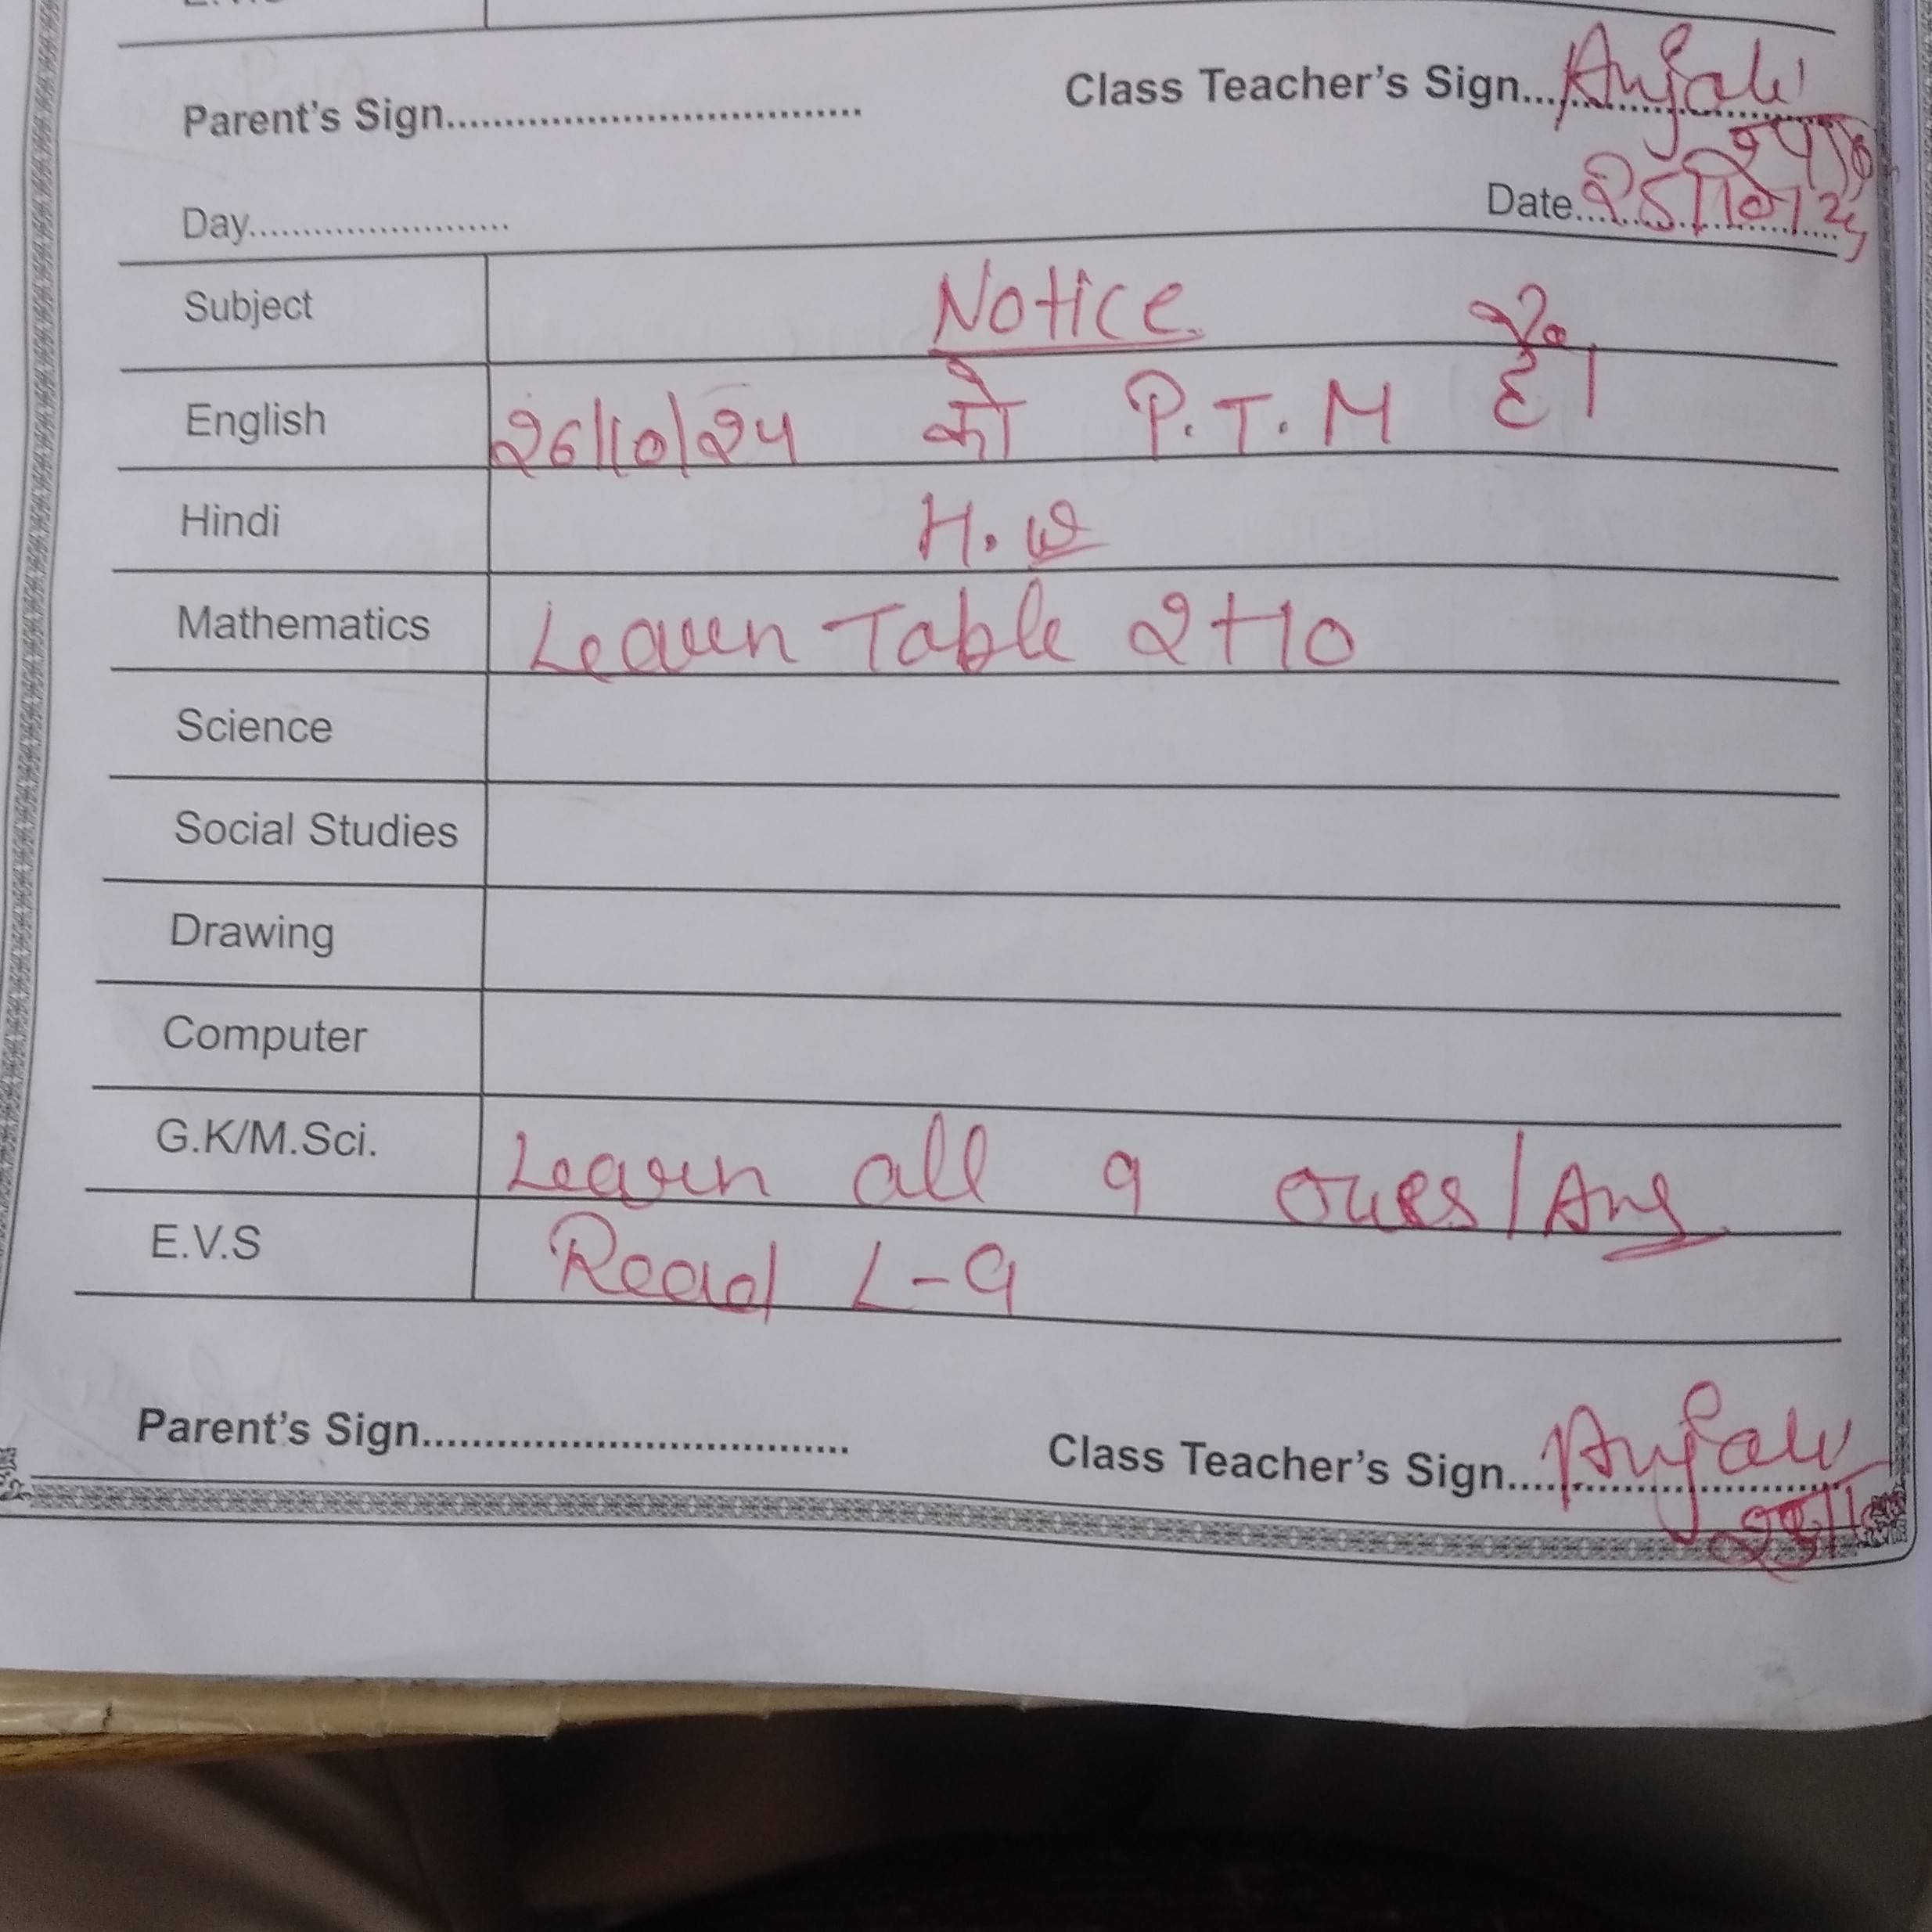 Parent's Sign.................................. Class Teacher's Sign... Anjali
Day........................ Date... 25/10/24
Subject Notice
English 26/10/24 को P.T.M है।
Hindi H.W
Mathematics Learn Table 2+10
Science
Social Studies
Drawing
Computer
G.K/M.Sci. Learn all 9 Ques/Ans
E.V.S Read L-9
Parent's Sign.................................. Class Teacher's Sign.... Anjali